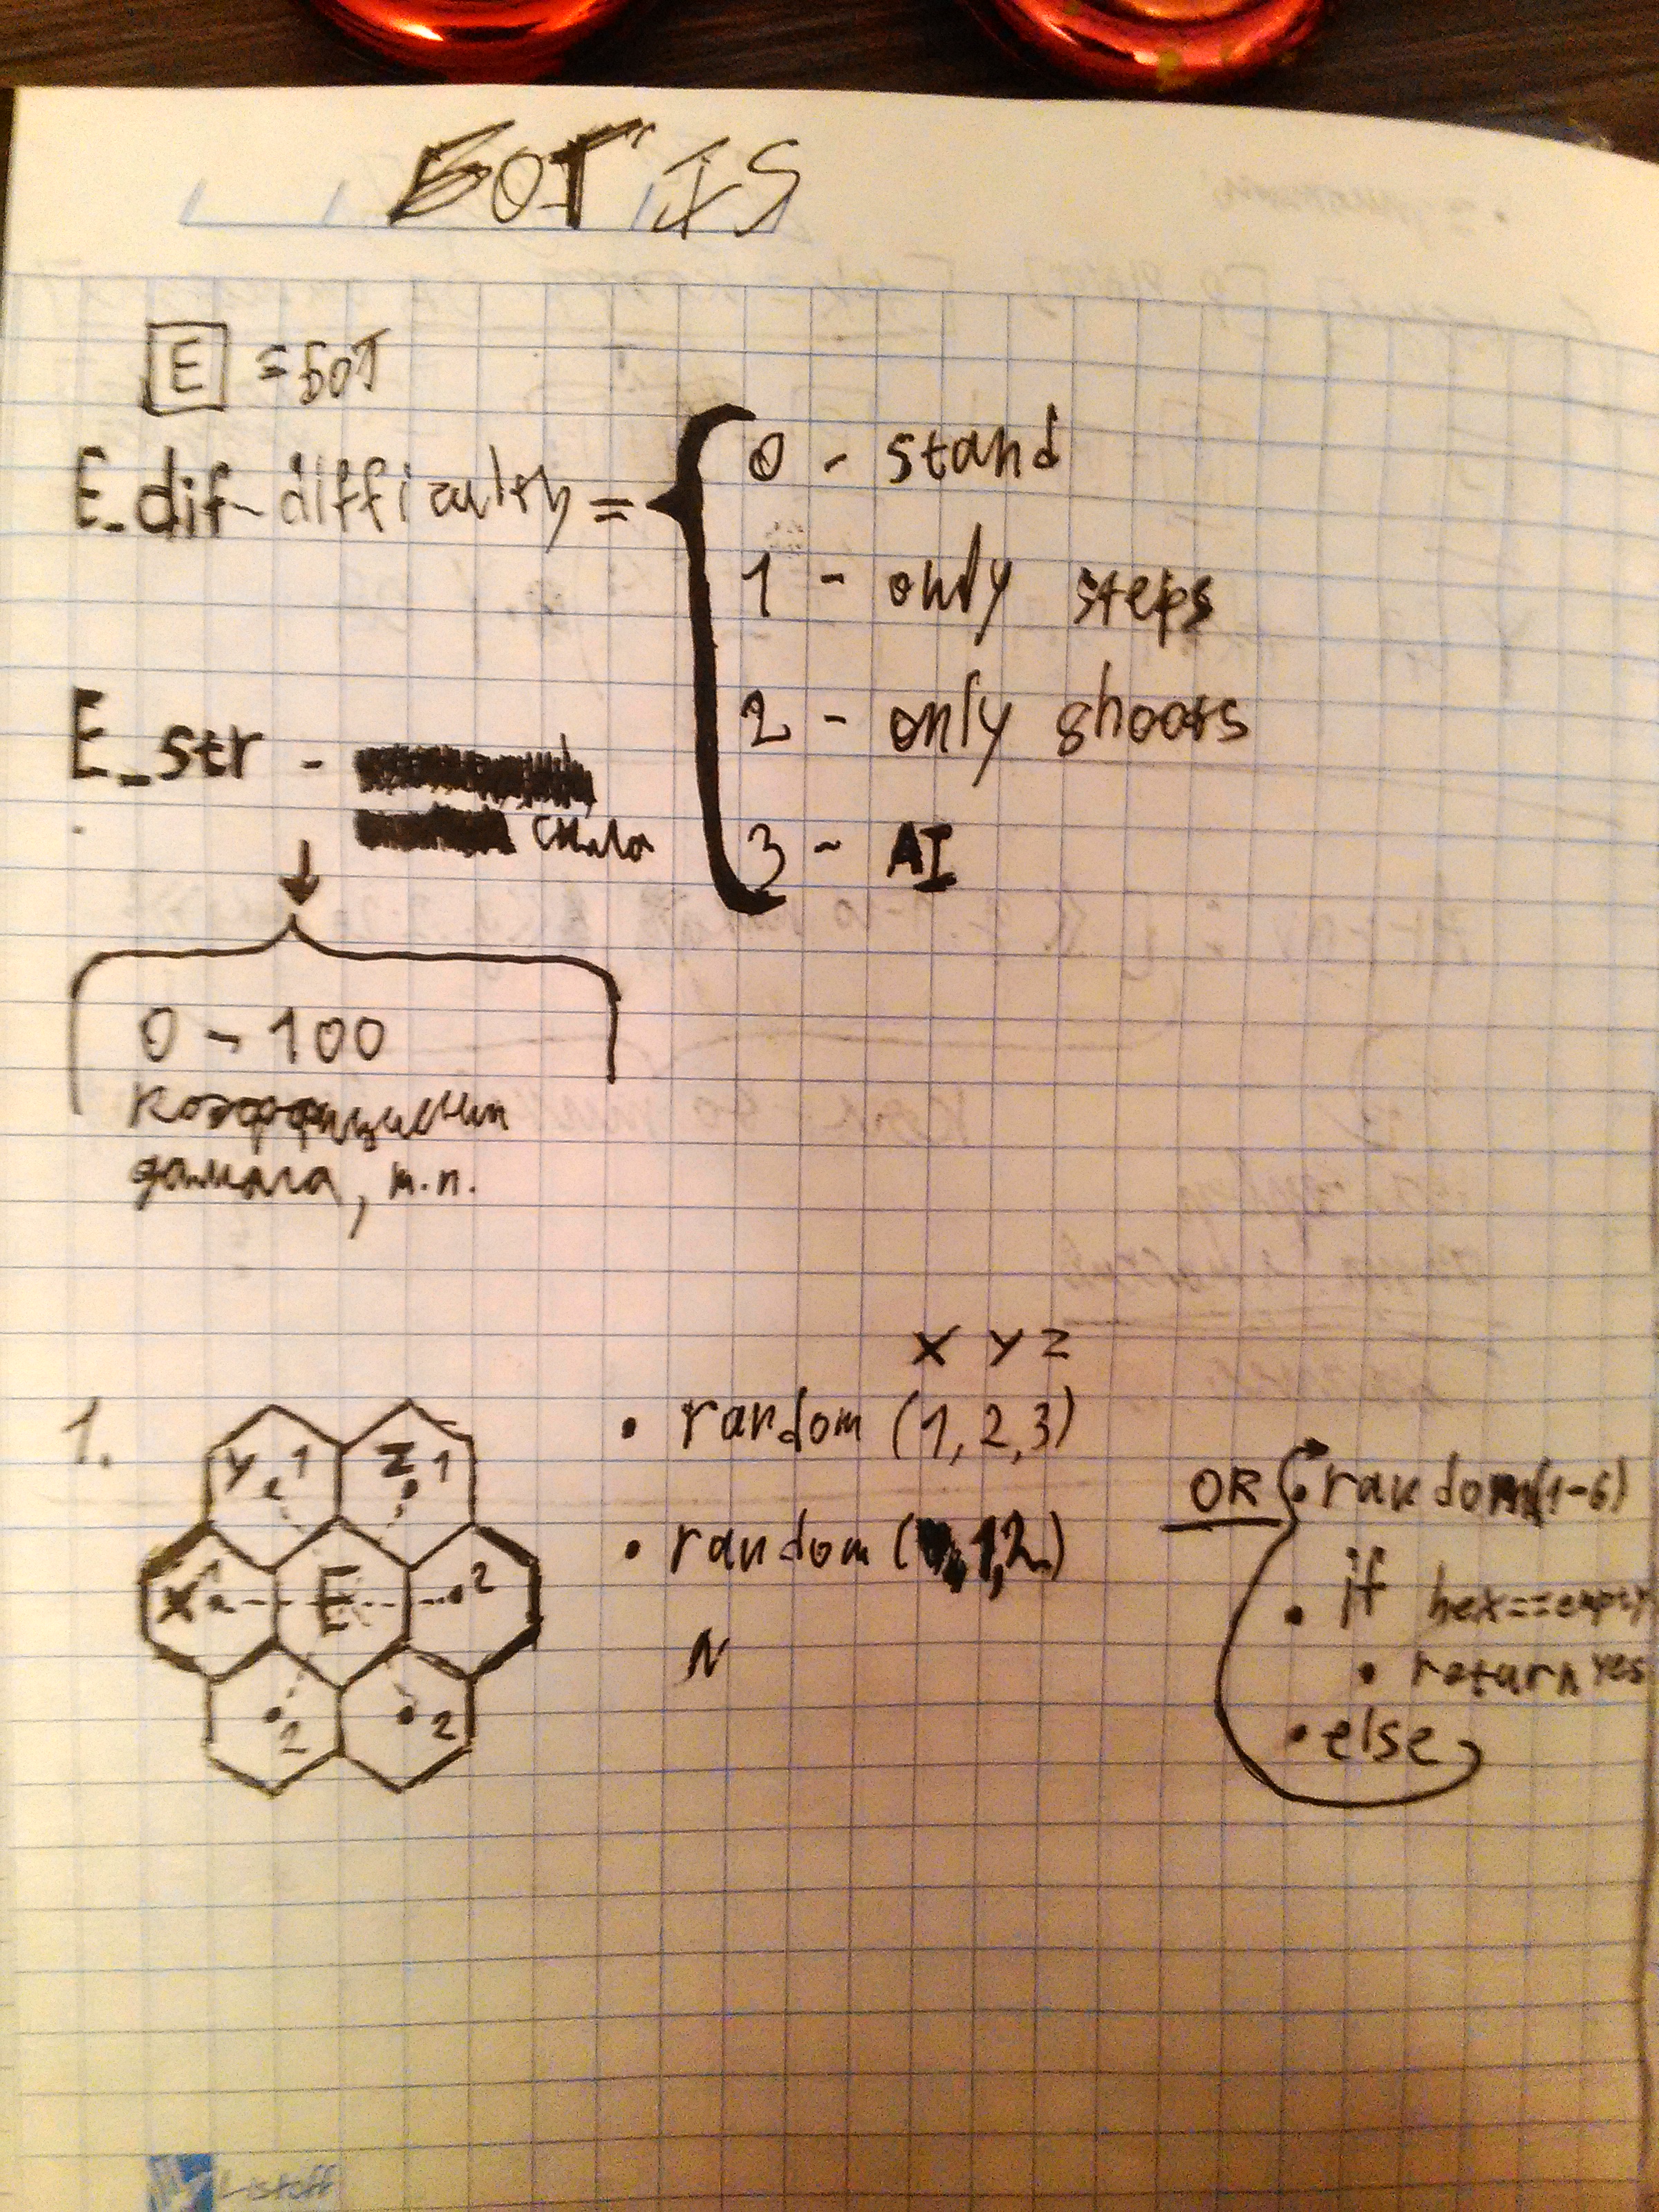 БОТ'IS
E = БОТ
E_dif - difficulty =
0 - stand
1 - only steps
2 - only shoots
3 - AI
E_str -
сила
0 - 100
коэффициент
дамага, т.п.
1.
Y 1 Z 1
X E 2
2 2
X Y Z
• random (1, 2, 3)
• random (1,2)
N
OR • random(1-6)
• if hex==empty
• return yes
• else
Listoff